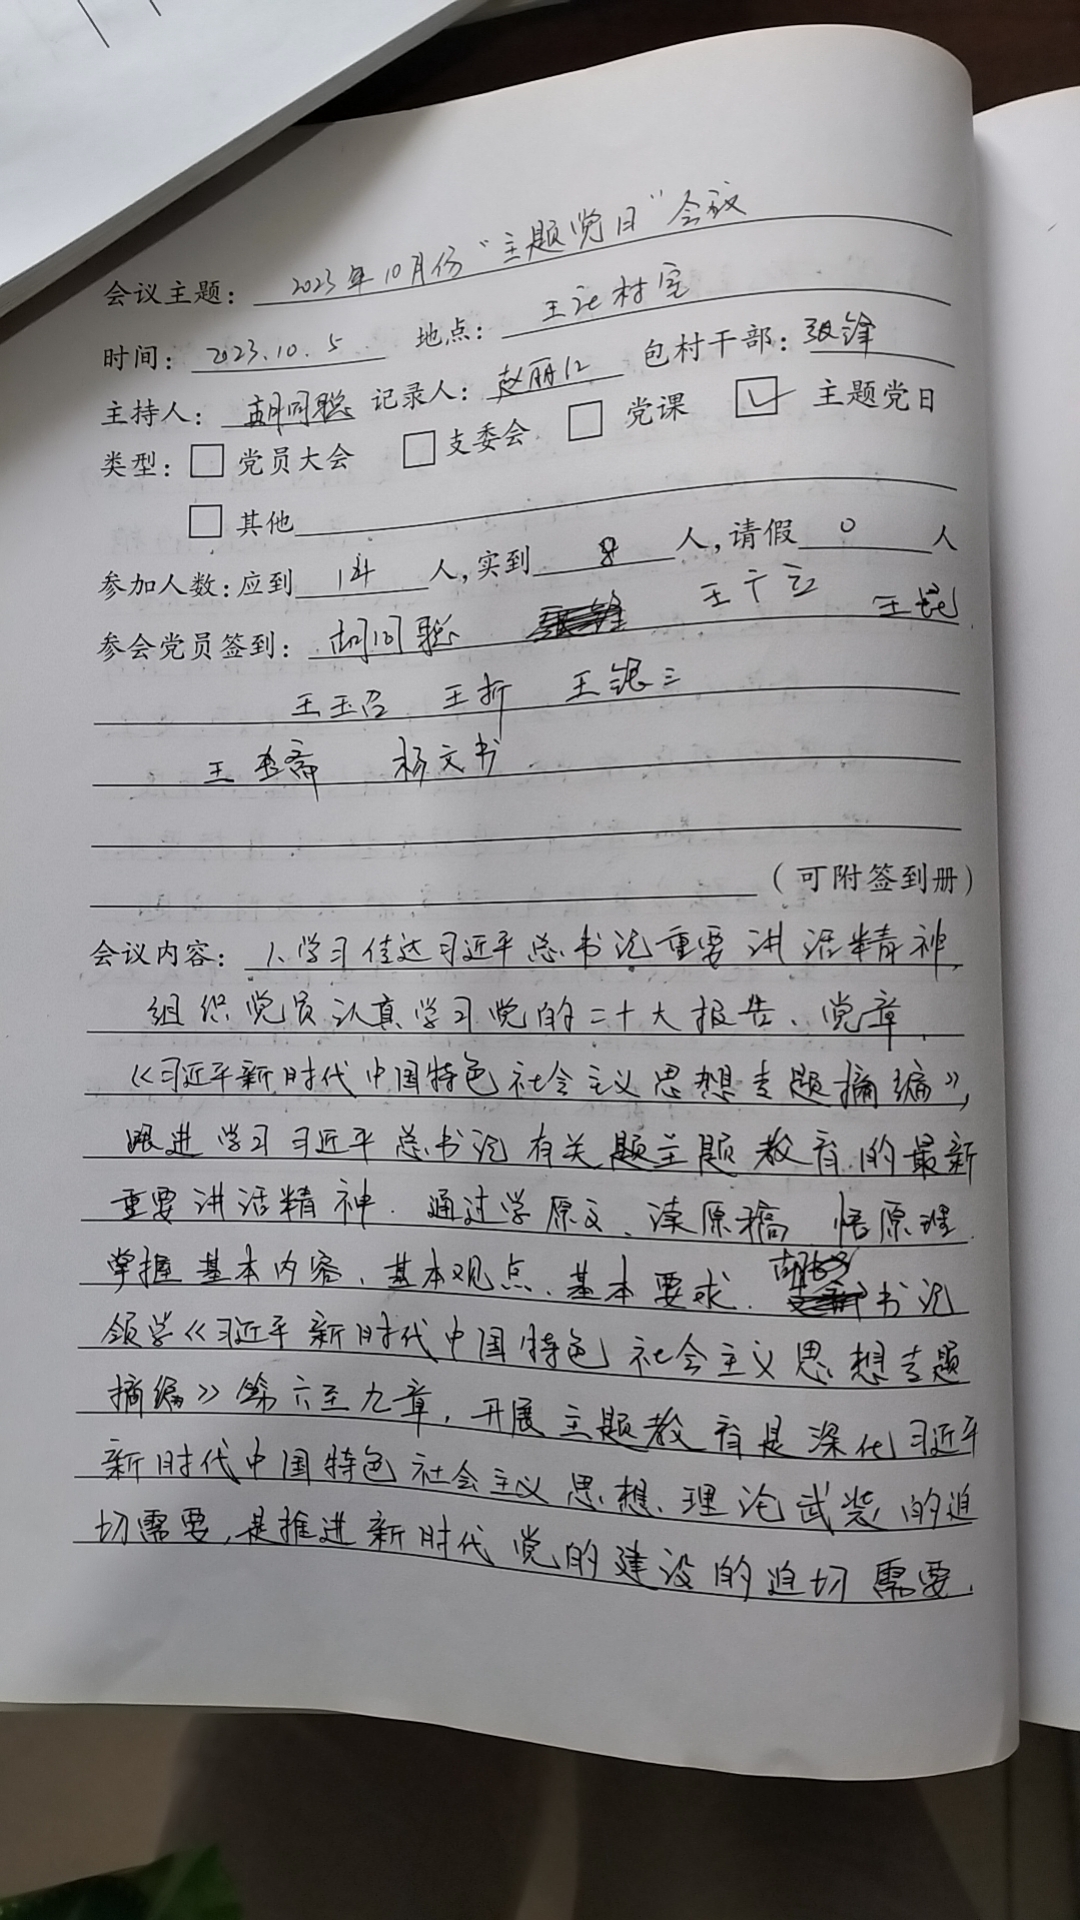 会议主题：2023年10月份“主题党日”会议
时间：2023.10.5 地点：王 村室
主持人：胡同聪 记录人：赵丽 包村干部：张锋
类型：□党员大会 □支委会 □党课 ☑主题党日
□其他
参加人数：应到 14 人，实到 8 人，请假 0 人
参会党员签到：胡同聪 王 王
王玉召 王折 王银三
王 斋 杨文书
（可附签到册）
会议内容：1、学习传达习近平总书记重要讲话精神，
组织党员认真学习党的二十大报告、党章、
《习近平新时代中国特色社会主义思想专题摘编》，
跟进学习习近平总书记有关题主题教育的最新
重要讲话精神．通过学原文、读原稿、悟原理．
掌握基本内容、基本观点、基本要求．书记
领学《习近平新时代中国特色社会主义思想专题
摘编》第六至九章，开展主题教育是深化习近平
新时代中国特色社会主义思想、理论武装的迫
切需要，是推进新时代党的建设的迫切需要，